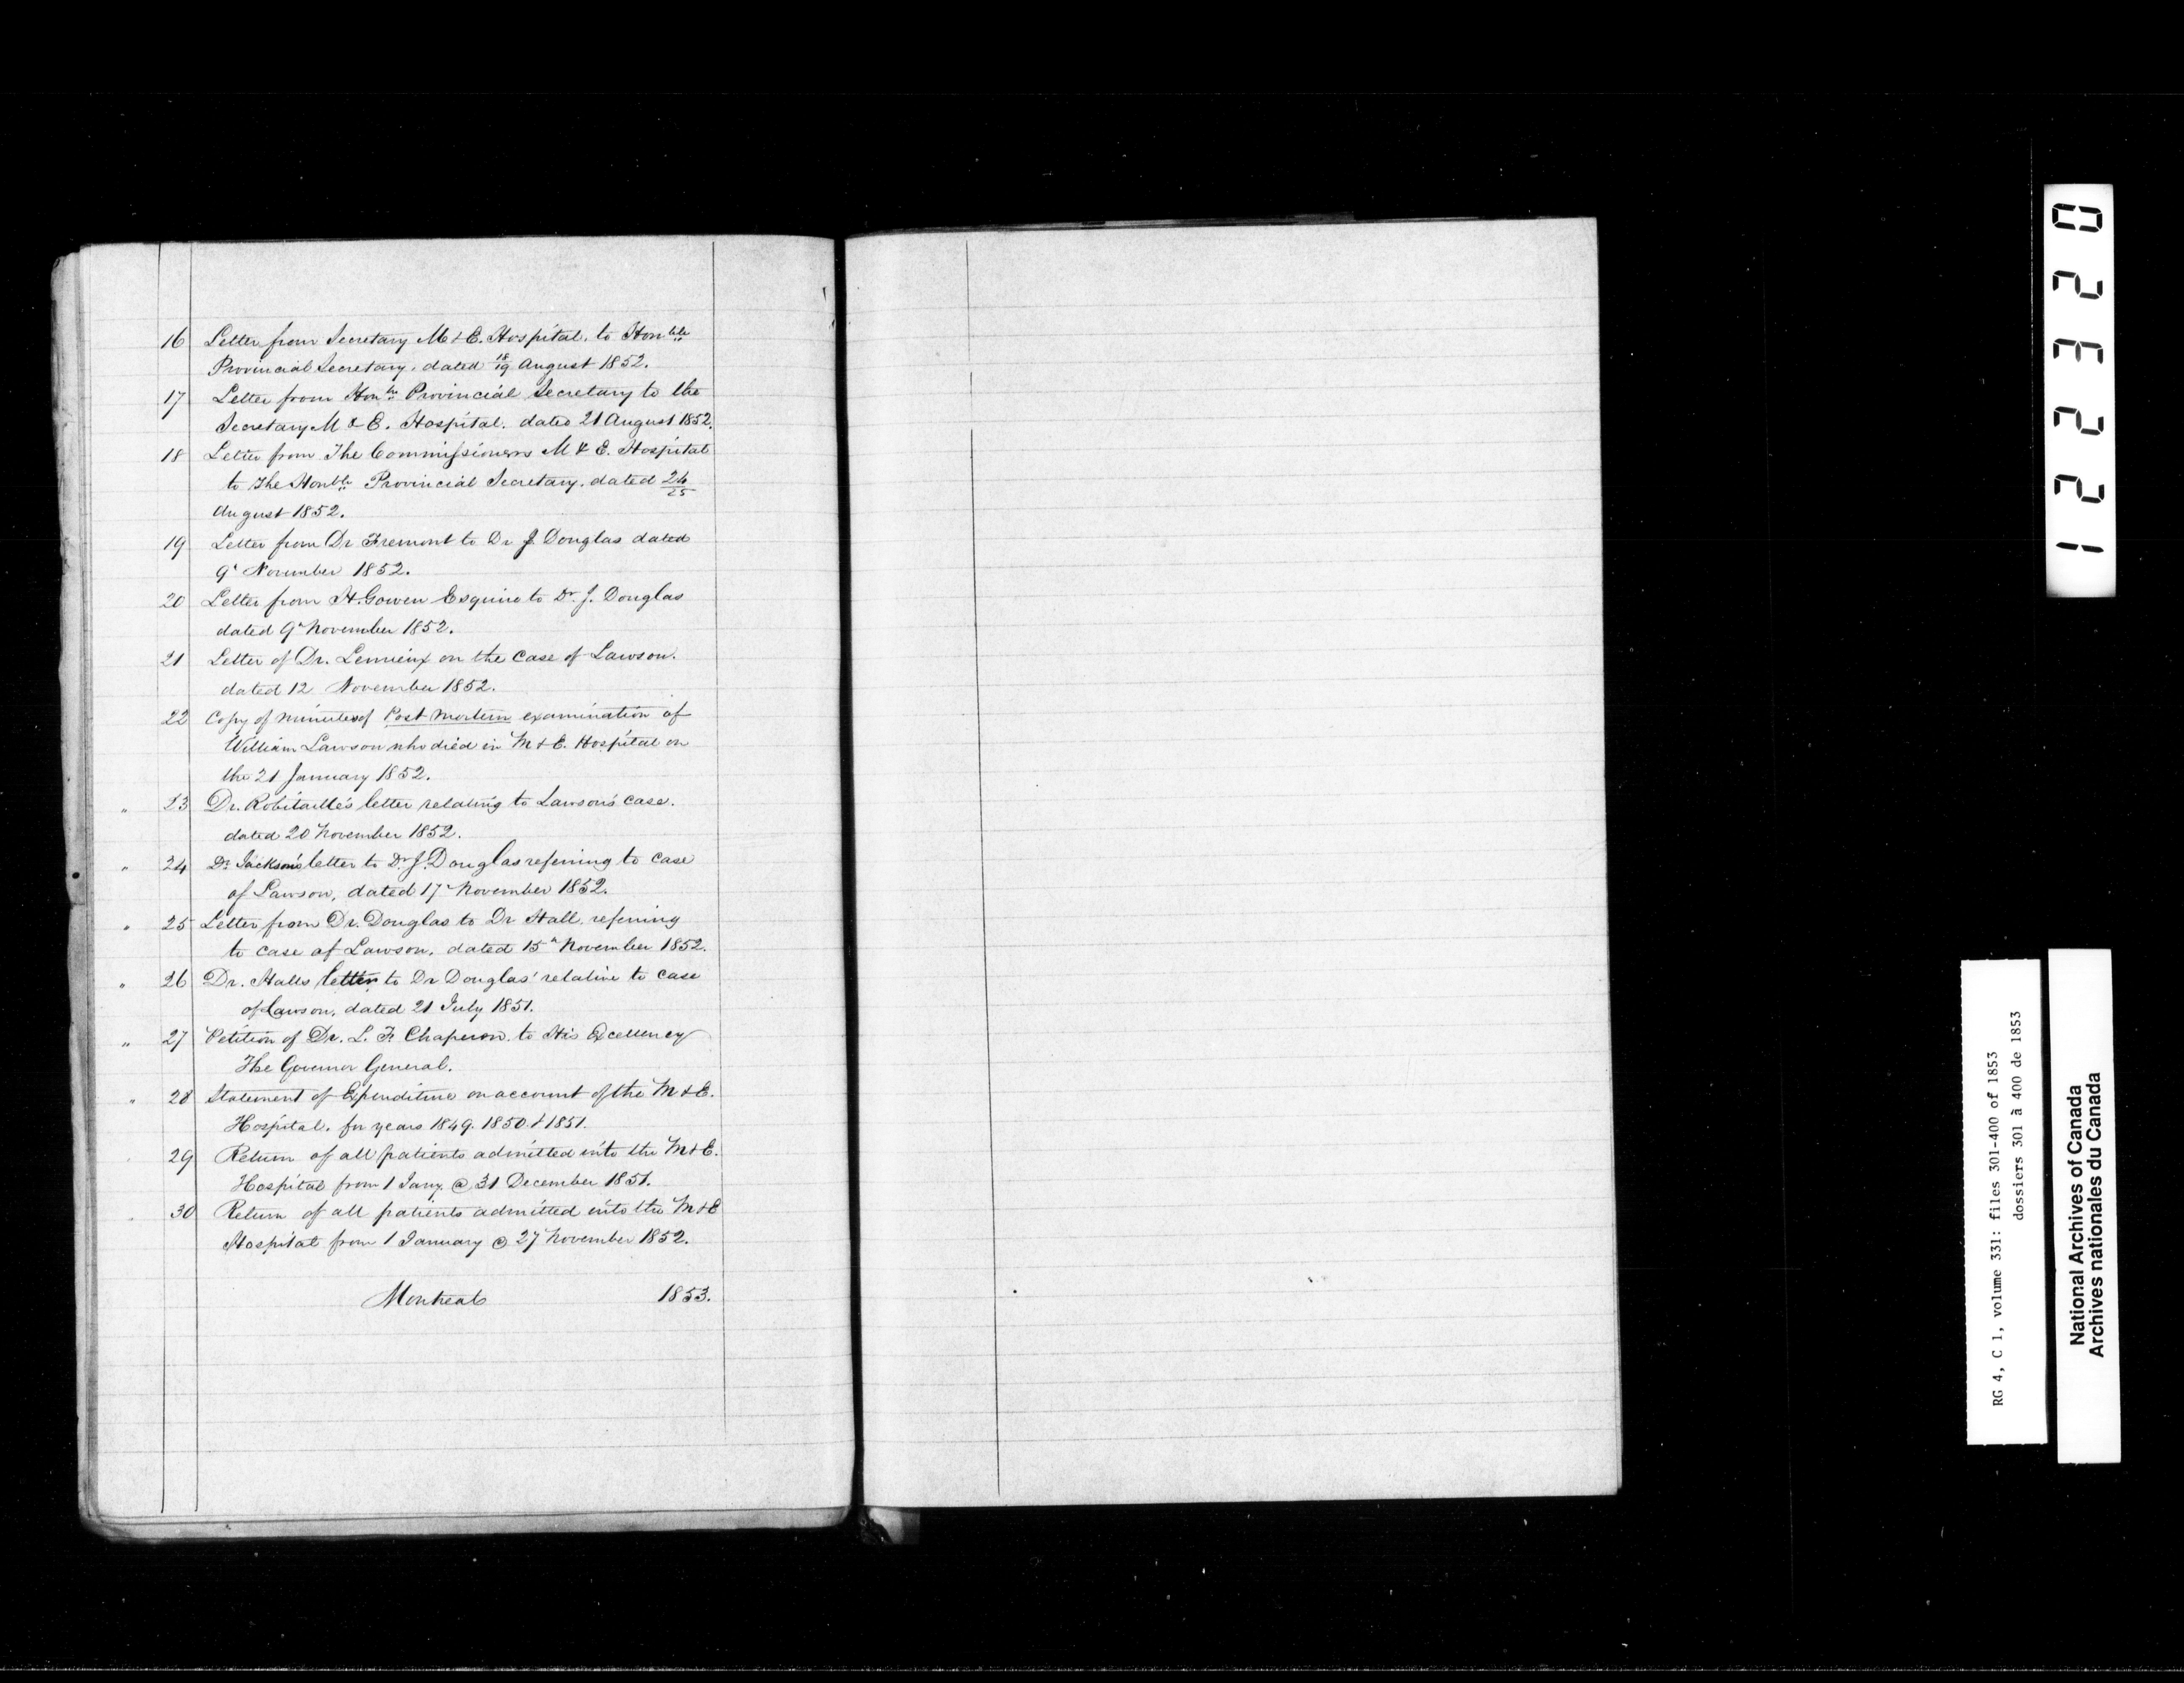 16 Letter from Secretary M & E. Hospital, to Honble
Provincial Secretary, dated 18/19 August 1852.
17 Letter from Honble Provincial Secretary to the
Secretary M & E. Hospital. dated 21 August 1852.
18 Letter from The Commissioners M & E. Hospital
to The Honble Provincial Secretary, dated 24/25
August 1852.
19 Letter from Dr Fremont to Dr J. Douglas dated
9th November 1852.
20 Letter from H. Gowen Esquire to Dr. J. Douglas
dated 9th November 1852.
21 Letter of Dr. Lemieux on the case of Lawson.
dated 12 November 1852.
22 Copy of minutes of Post Mortem examination of
William Lawson who died in M & E. Hospital on
the 21 January 1852.
" 23 Dr. Robitaille's letter relating to Lawson's case.
dated 20 November 1852.
" 24 Dr. Jackson's letter to Dr J. Douglas referring to case
of Lawson, dated 17th November 1852.
" 25 Letter from Dr. Douglas to Dr Hall. referring
to case of Lawson, dated 15th November 1852.
" 26 Dr. Halls letter to Dr Douglas' relative to case
of Lawson, dated 21 July 1851.
" 27 Petition of Dr. L. F. Chaperon. to His Excellency
The Governor General.
" 28 Statement of Expenditure on account of the M & E.
Hospital. for years 1849. 1850 & 1851.
29 Return of all patients admitted into the M & E.
Hospital from 1 Jany. @ 31 December 1851.
30 Return of all patients admitted into the M & E
Hospital from 1 January @ 27 November 1852.
Montreal 1853.
122320
RG 4, C 1, volume 331: files 301-400 of 1853
dossiers 301 à 400 de 1853
National Archives of Canada
Archives nationales du Canada